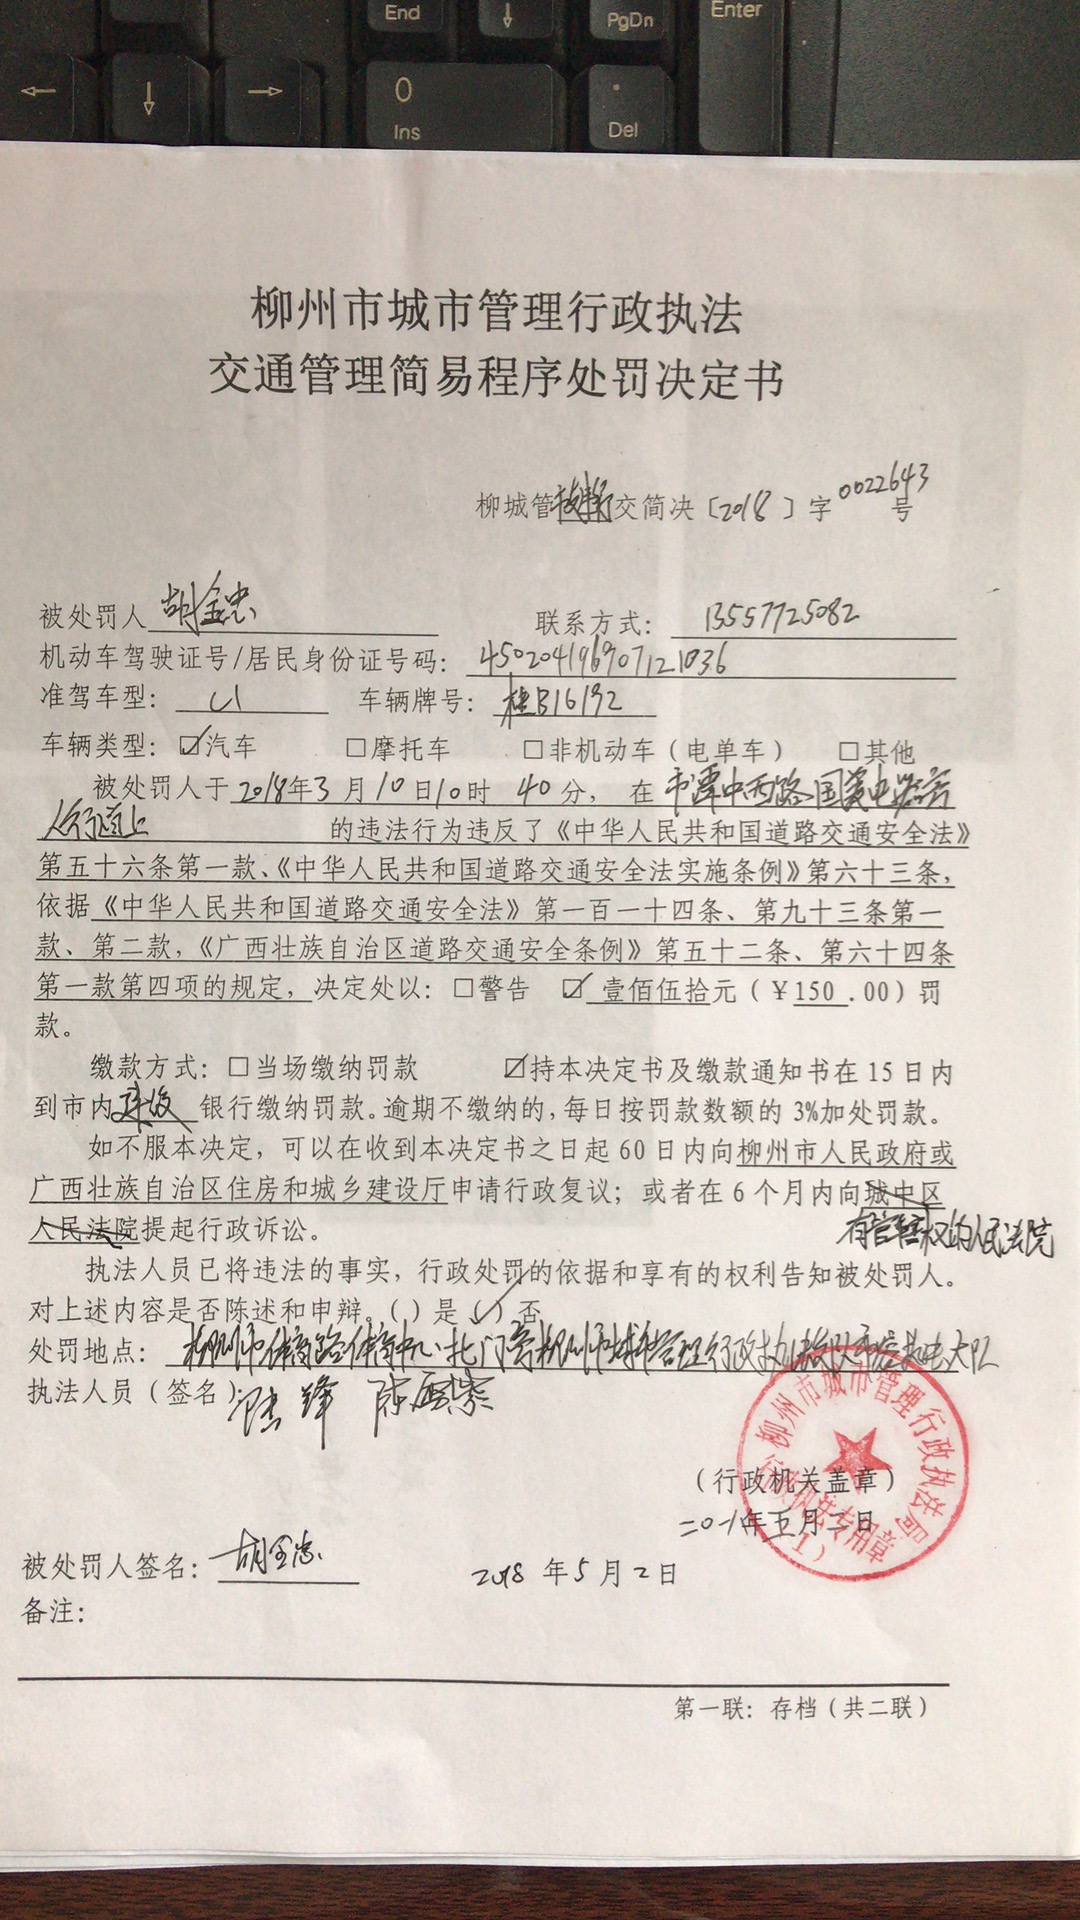 End
↓
PgDn
Enter
←
↓
→
0
Ins
.
Del
柳州市城市管理行政执法
交通管理简易程序处罚决定书
柳城管 交简决〔2018〕字0022643号
被处罚人 胡金忠 联系方式： 13557725082
机动车驾驶证号/居民身份证号码： 450204196907121036
准驾车型： C1 车辆牌号： 桂B16192
车辆类型：☑汽车 □摩托车 □非机动车（电单车） □其他
被处罚人于2018年3月10日10时40分，在 潭中西路国美电器旁
人行道上 的违法行为违反了《中华人民共和国道路交通安全法》
第五十六条第一款、《中华人民共和国道路交通安全法实施条例》第六十三条，
依据《中华人民共和国道路交通安全法》第一百一十四条、第九十三条第一
款、第二款，《广西壮族自治区道路交通安全条例》第五十二条、第六十四条
第一款第四项的规定，决定处以：□警告 ☑壹佰伍拾元（￥150.00）罚
款。
缴款方式：□当场缴纳罚款 ☑持本决定书及缴款通知书在15日内
到市内 银行缴纳罚款。逾期不缴纳的，每日按罚款数额的3%加处罚款。
如不服本决定，可以在收到本决定书之日起60日内向柳州市人民政府或
广西壮族自治区住房和城乡建设厅申请行政复议；或者在6个月内向城中区
人民法院提起行政诉讼。 有管辖权的人民法院
执法人员已将违法的事实，行政处罚的依据和享有的权利告知被处罚人。
对上述内容是否陈述和申辩。（ ）是（✓）否
处罚地点： 柳州市体育路体育中心北门旁柳州市城市管理行政执法
执法人员（签名）
柳州市城市管理行政执法局
（行政机关盖章）
二〇一八年五月二日
（1）
被处罚人签名： 胡金忠 2018年5月2日
备注：
第一联：存档（共二联）